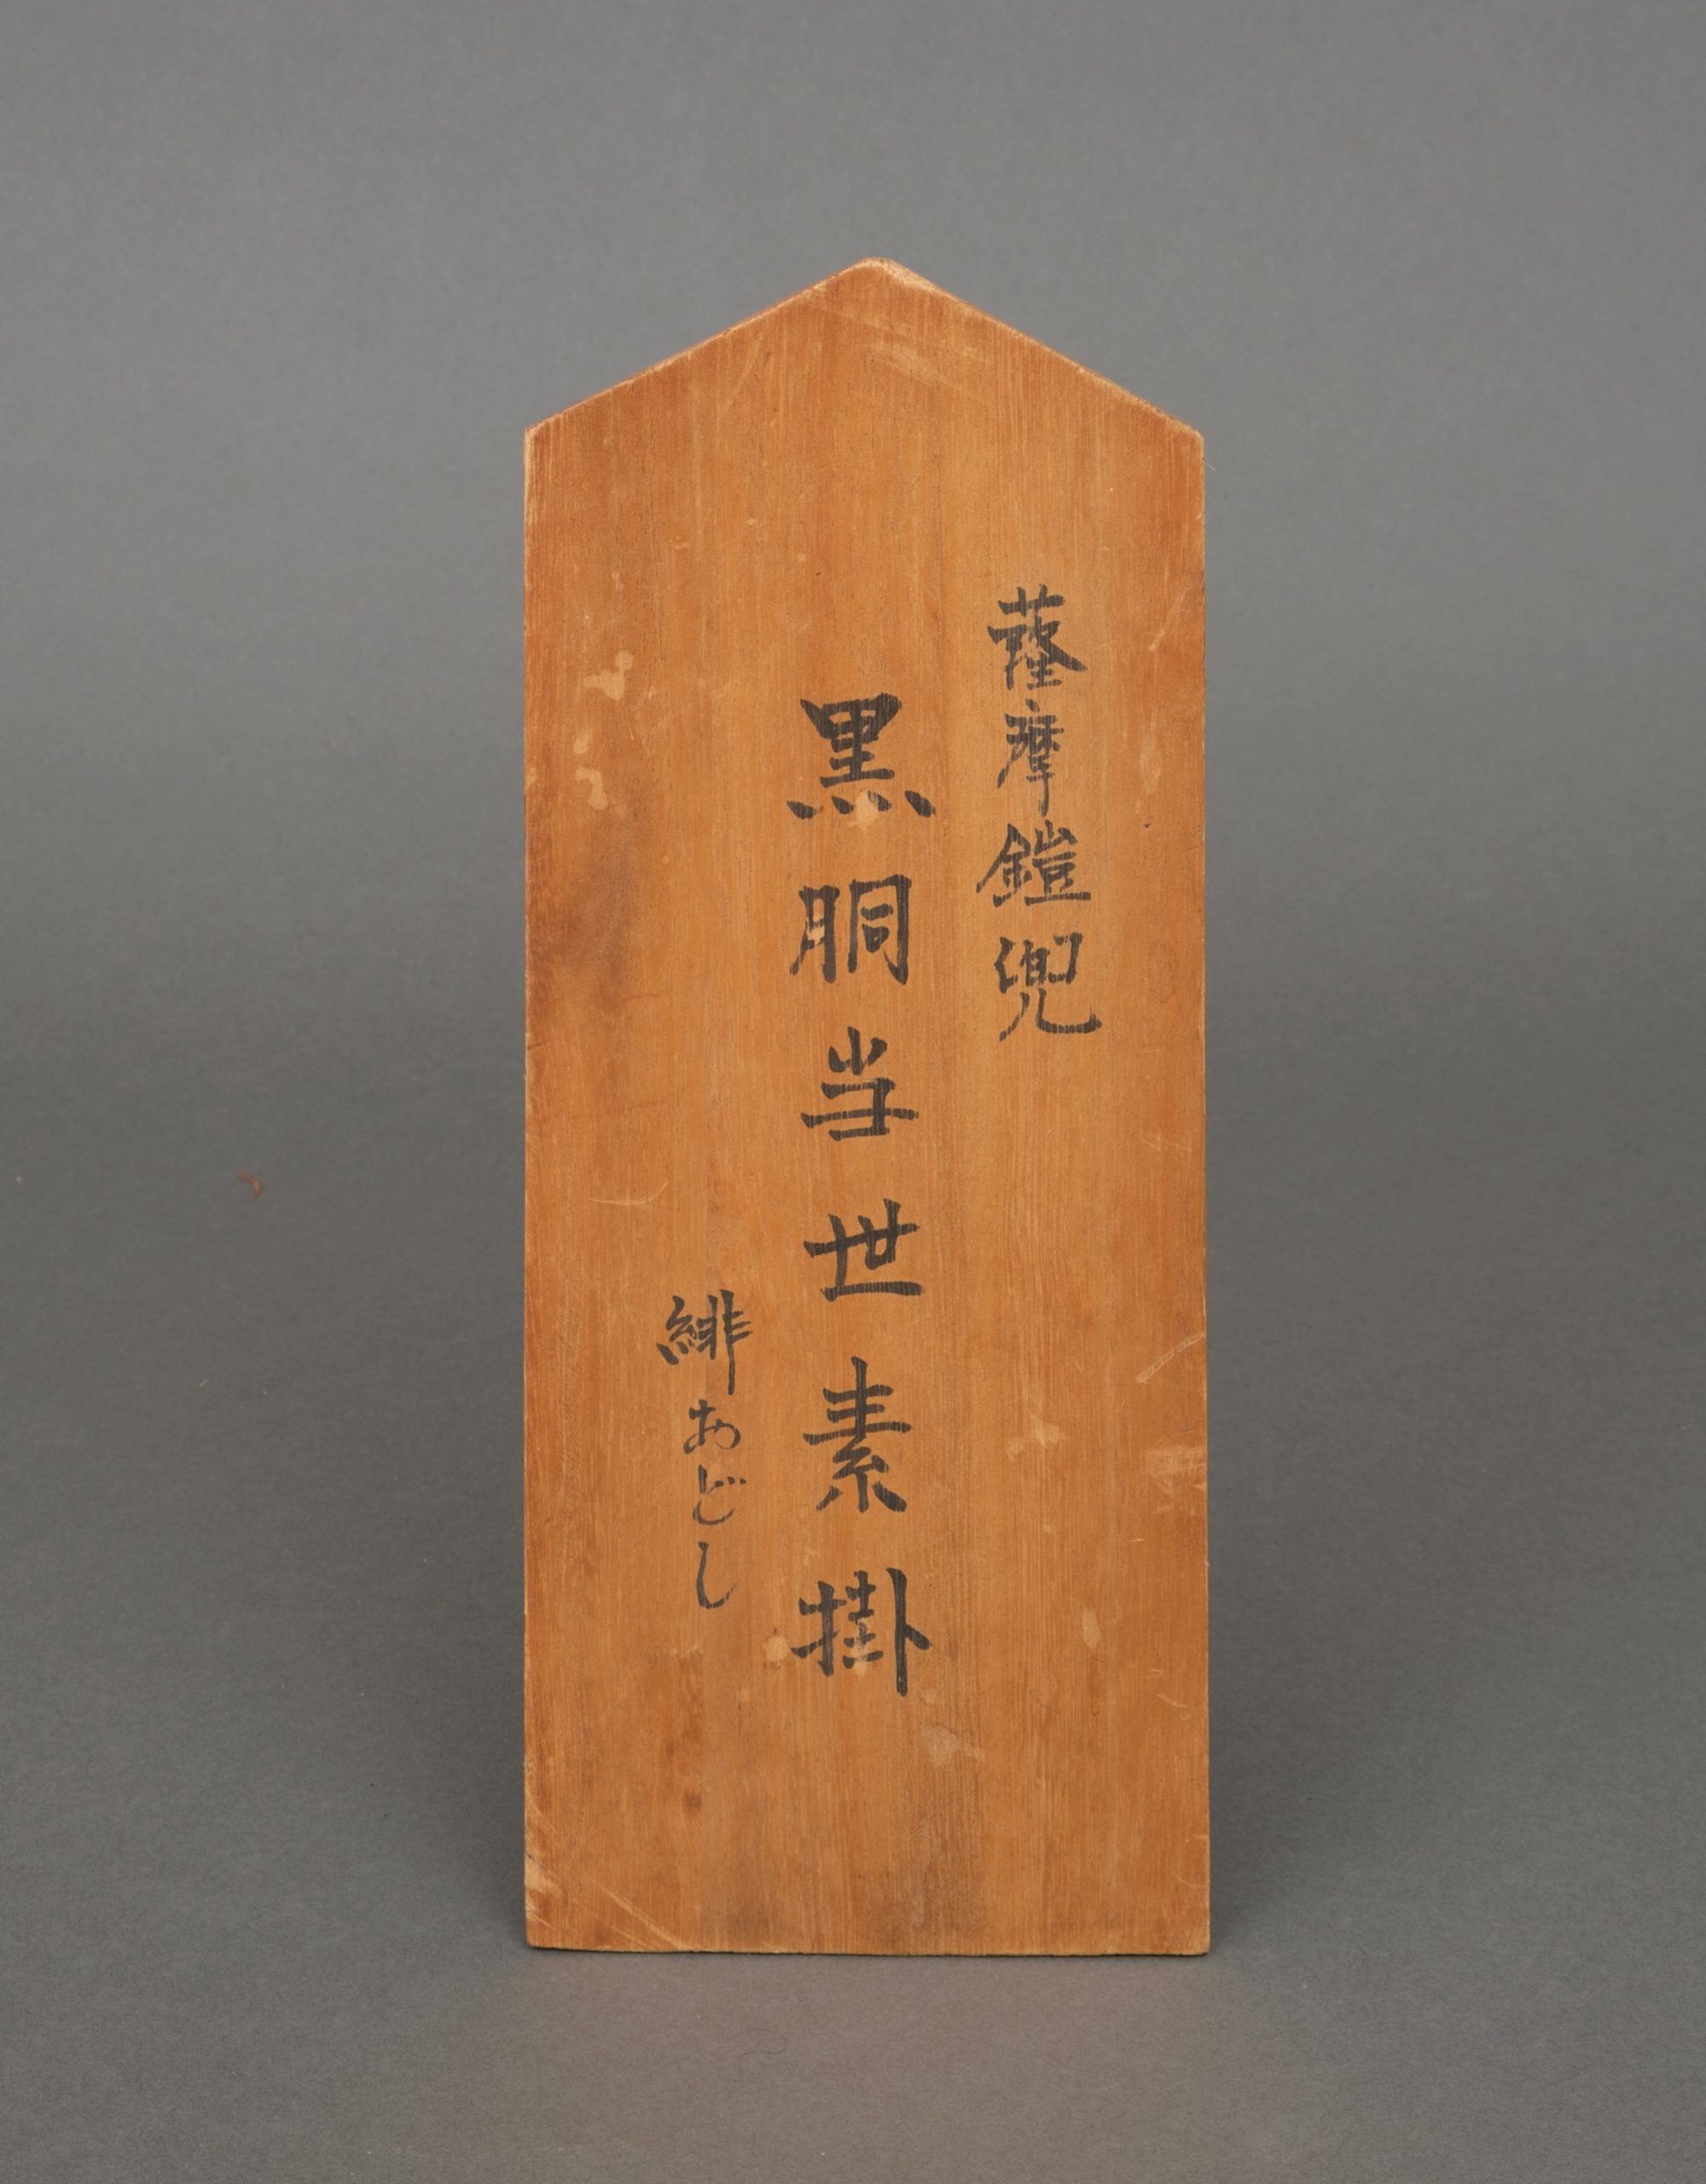 薩摩鎧兜
黒胴当世素掛
緋おどし